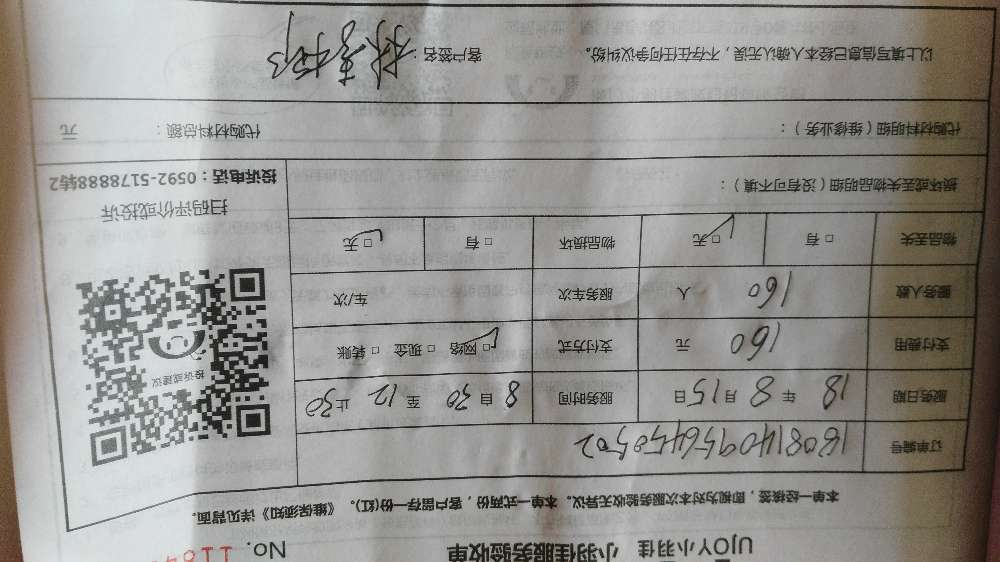 UJOY小羽佳 小羽佳服务验收单 No. 118
本单一经核签,即视为对本次服务验收无异议。本单一式两份,客户留存一份(红)。《维保须知》详见背面。
订单编号 1808140956450502
服务日期 18 年 8 月 15 日 服务时间 8 自 30 至 12 止 30
支付费用 160 元 支付方式 □ 网络 □ 现金 □ 转账
服务人数 160 人 服务车次 车/次
物品丢失 □ 有 □ 无 物品损坏 □ 有 □ 无
投诉或建议
扫码评价或投诉
投诉电话:0592-5178888转2
损坏或丢失物品明细(没有可不填):
代购材料明细(维修业务): 代购材料总额: 元
以上填写信息已经本人确认无误,不存在任何争议纠纷。 客户签名: